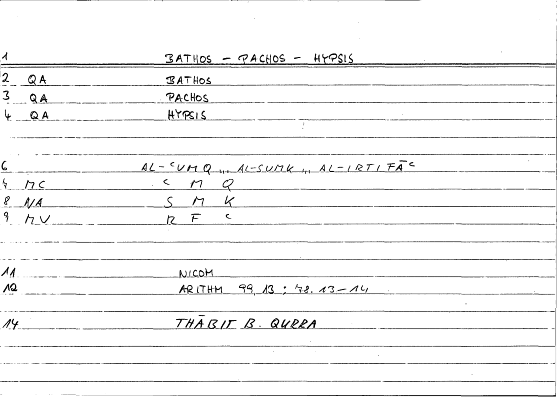 1 BATHOS - PACHOS - HYPSIS
2 QA BATHOS
3 QA PACHOS
4 QA HYPSIS
6 AL-ʿUMQ ,,, AL-SUMK ,,, AL-IRTIFĀʿ
MC ʿ M Q
8 NA S M K
9 MV R F ʿ
11 NICOM
12 ARITHM 99, 13 ; 48. 13-14
14 THĀBIT B. QURRA